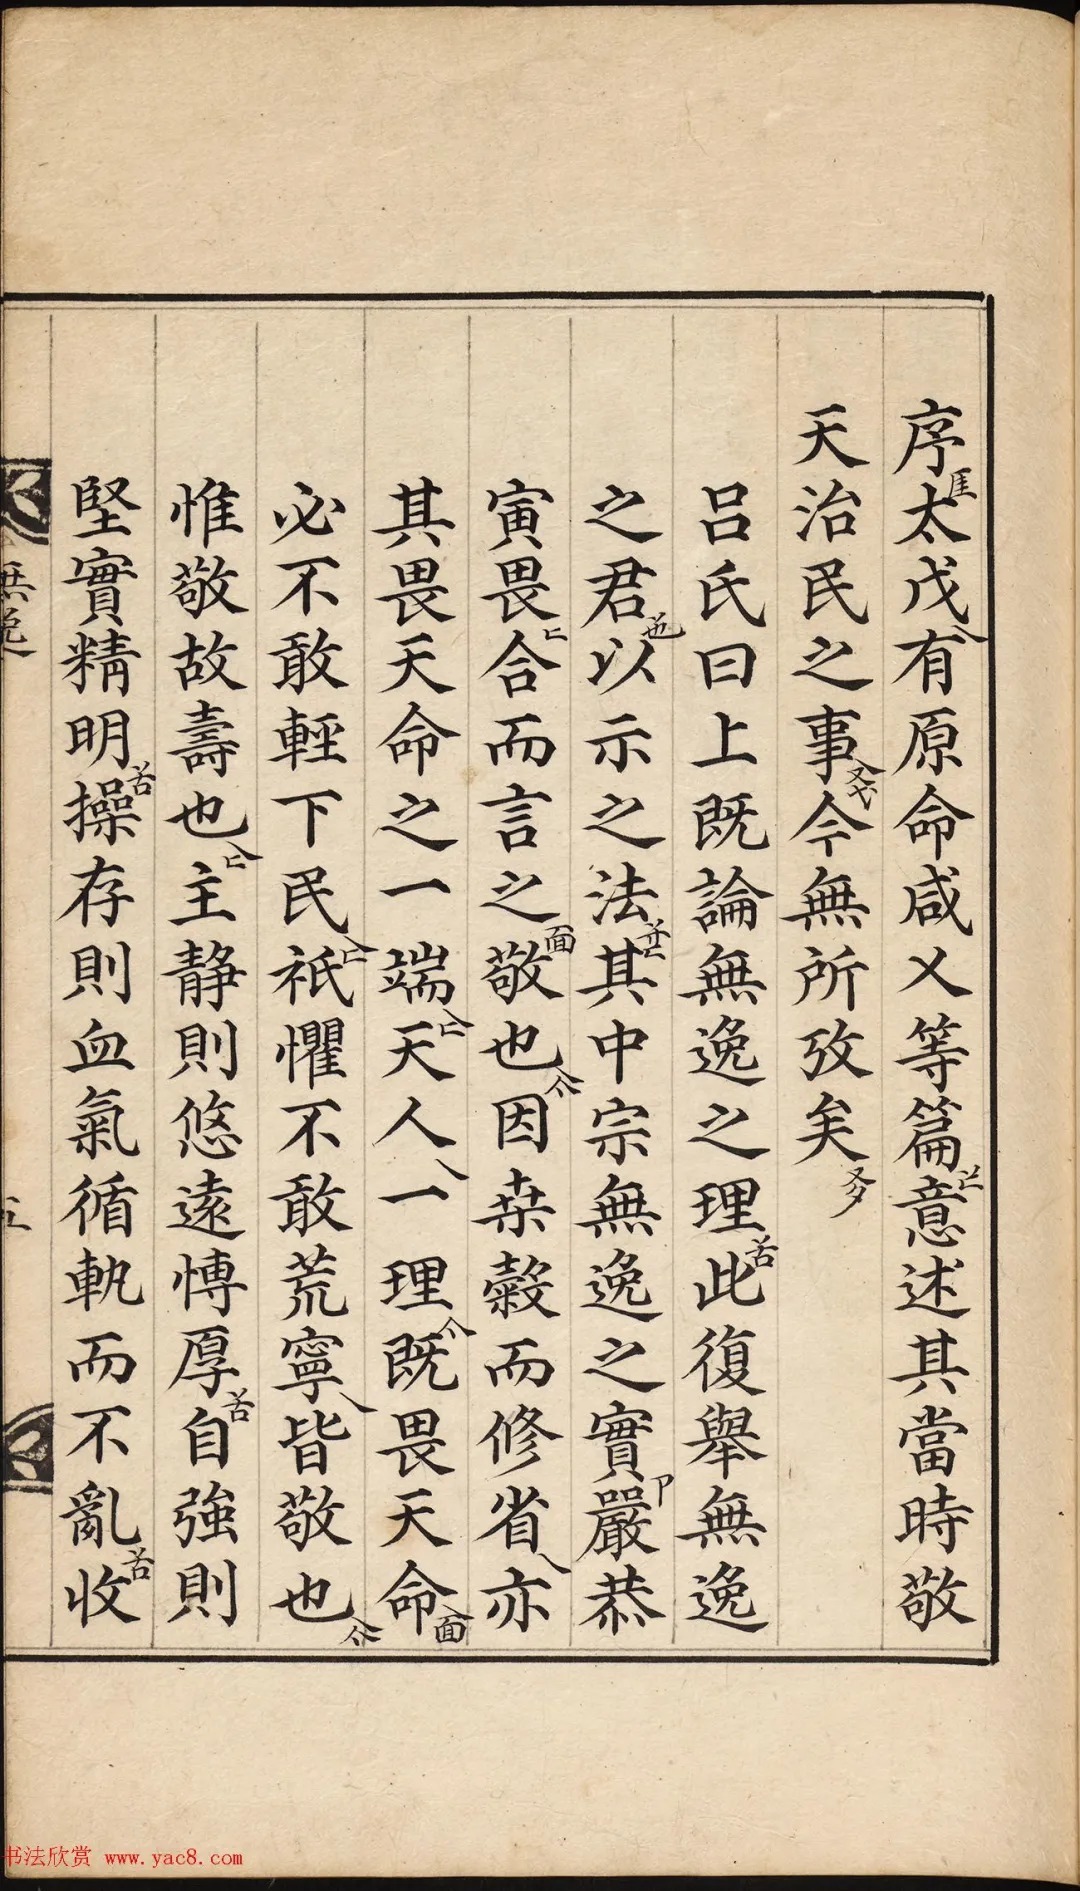 序太戊有原命咸乂等篇意述其當時敬
天治民之事今無所攷矣
吕氏曰上既論無逸之理此復舉無逸
之君以示之法其中宗無逸之實嚴恭
寅畏合而言之敬也因桒榖而修省亦
其畏天命之一端天人一理既畏天命
必不敢輕下民祇懼不敢荒寧皆敬也
惟敬故壽也主静則悠遠博厚自強則
堅實精明操存則血氣循軌而不亂收
無逸
五
书法欣赏 www.yac8.com